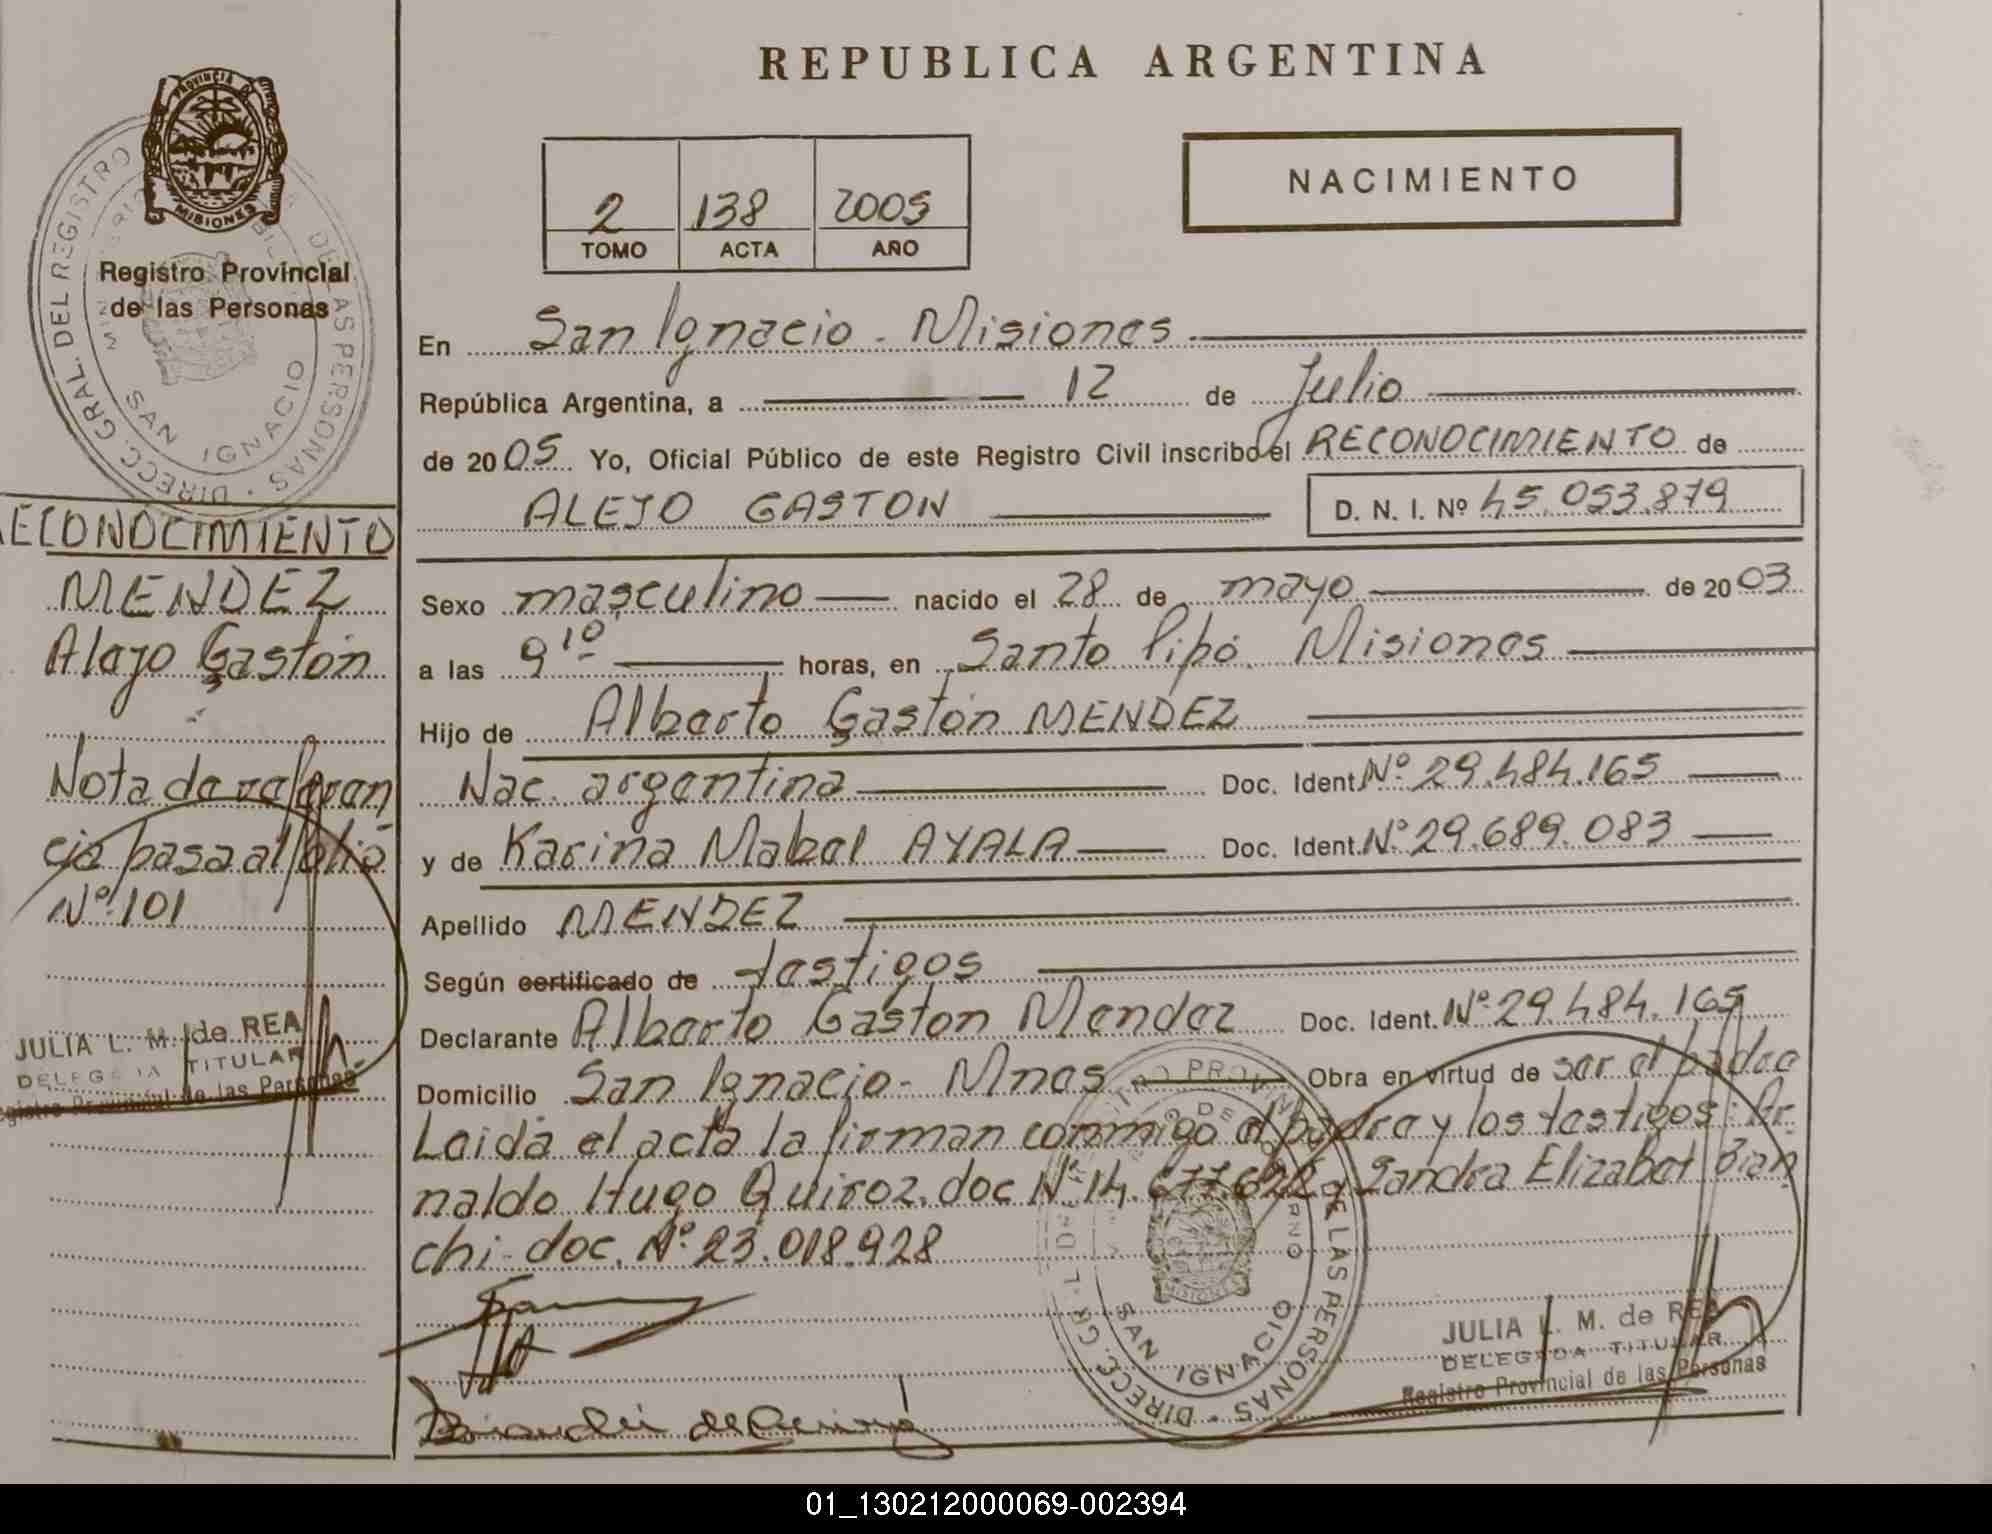 REPUBLICA ARGENTINA
PROVINCIA DE
MISIONES
Registro Provincial
de las Personas
DIRECC. GRAL. DEL REGISTRO DE LAS PERSONAS
SAN IGNACIO
2 138 2005
TOMO ACTA AÑO
NACIMIENTO
En San Ignacio - Misiones
República Argentina, a 12 de Julio
de 2005 Yo, Oficial Público de este Registro Civil inscribo el RECONOCIMIENTO de
ALEJO GASTON D. N. I. Nº 45.053.879
Sexo masculino nacido el 28 de mayo de 2003
a las 9 10 horas, en Santo Pipó. Misiones
Hijo de Alberto Gastón MENDEZ
Nac. argentina Doc. Ident. Nº 29.484.165
y de Karina Mabel AYALA Doc. Ident. Nº 29.689.083
Apellido MENDEZ
Según certificado de testigos
Declarante Alberto Gastón Mendez Doc. Ident. Nº 29.484.165
Domicilio San Ignacio - Mnes Obra en virtud de ser el padre
Leida el acta la firman conmigo el padre y los testigos: Ar
naldo Hugo Quiroz. doc Nº 14.677.622 y Sandra Elizabet Bian
chi - doc. Nº 23.018.928
JULIA L. M. de REA
DELEGADA TITULAR
Registro Provincial de las Personas
DIRECC. GRAL. DE LAS PERSONAS
SAN IGNACIO
RECONOCIMIENTO
MENDEZ
Alejo Gastón
Nota de referen
cia pasa al folio
Nº 101
JULIA L. M. de REA
DELEGADA TITULAR
Registro Provincial de las Personas
01_130212000069-002394